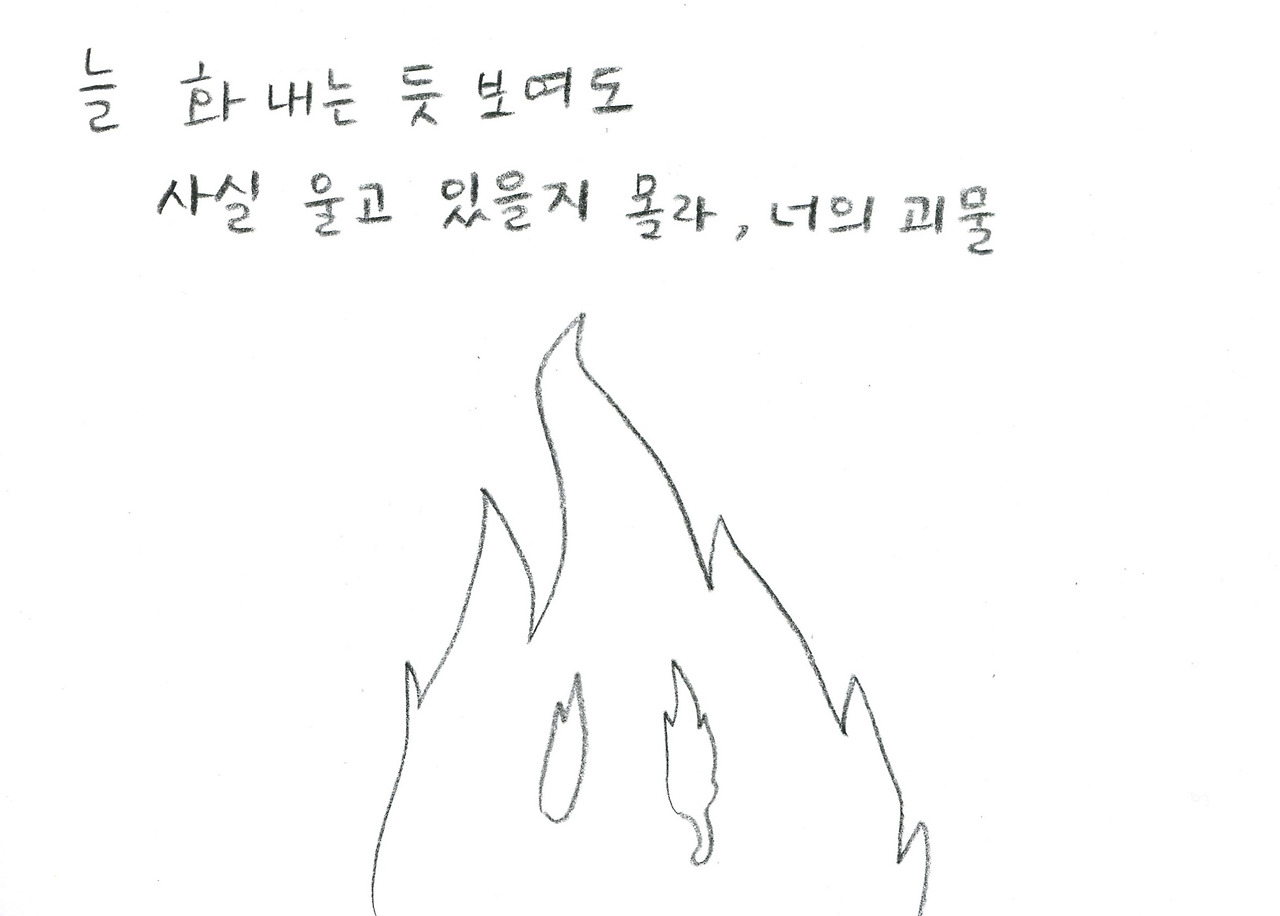 늘 화 내는 듯 보여도
사실 울고 있을지 몰라, 너의 괴물